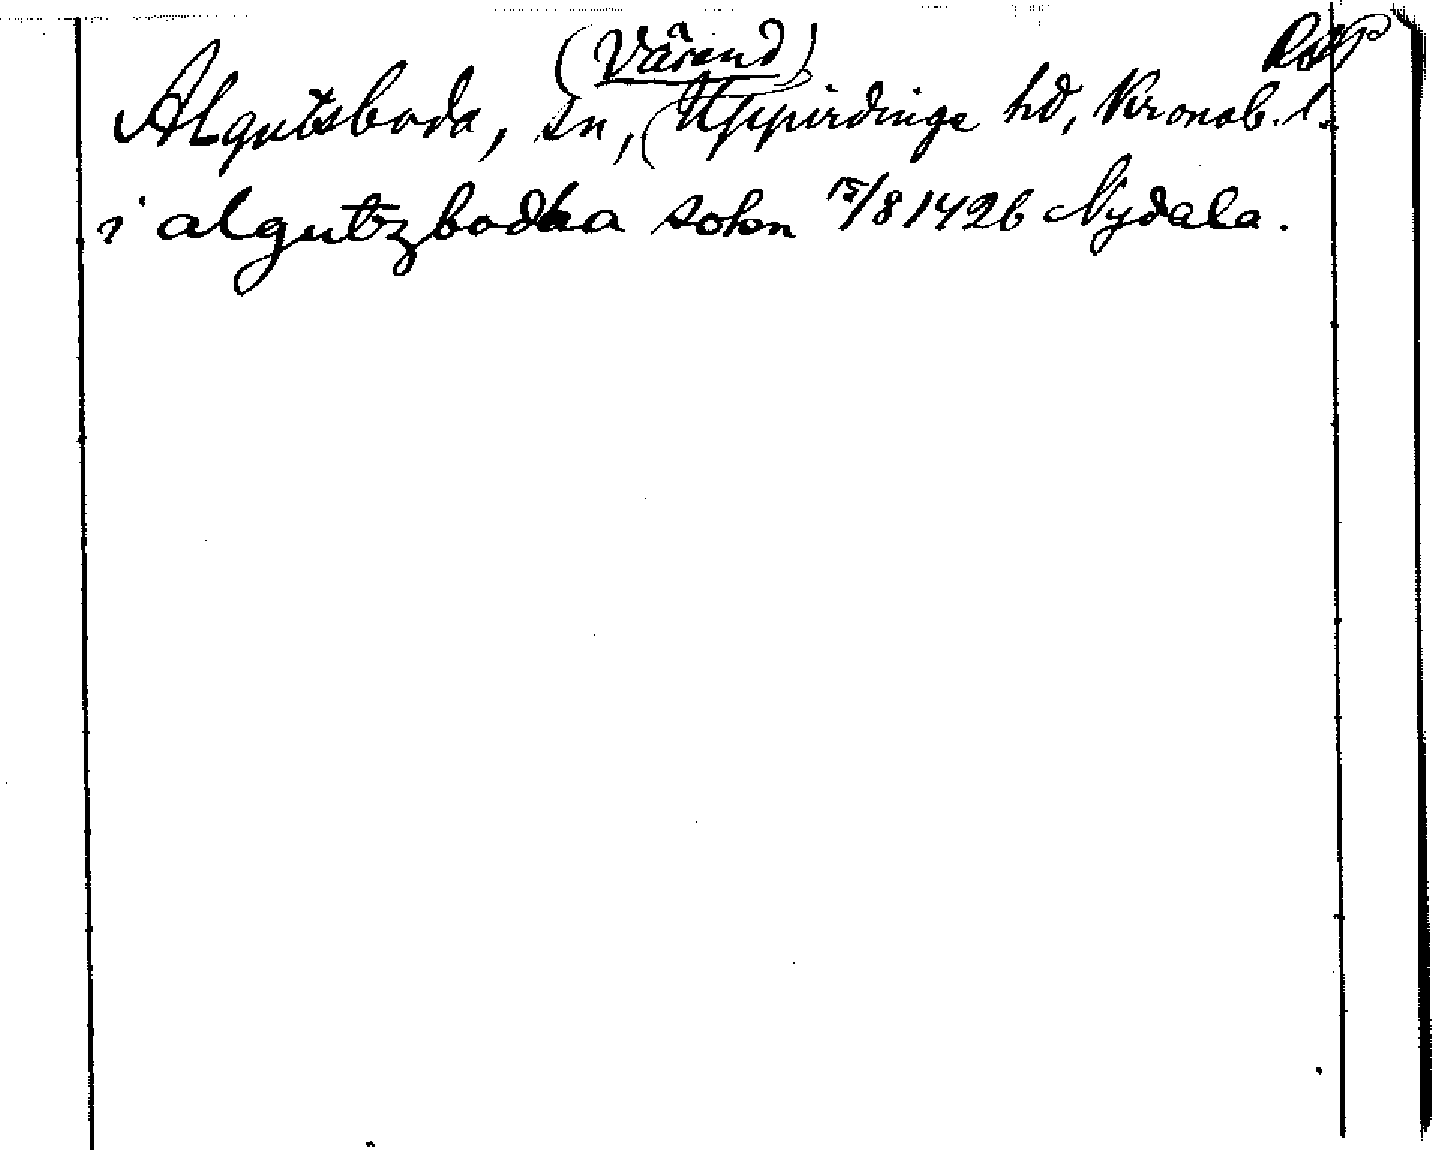 (Värend)
Algutsboda, sn, (Uppvidinge hd, Kronob. l.
i algutzbodha sokn 15/8 1426 Nydala.